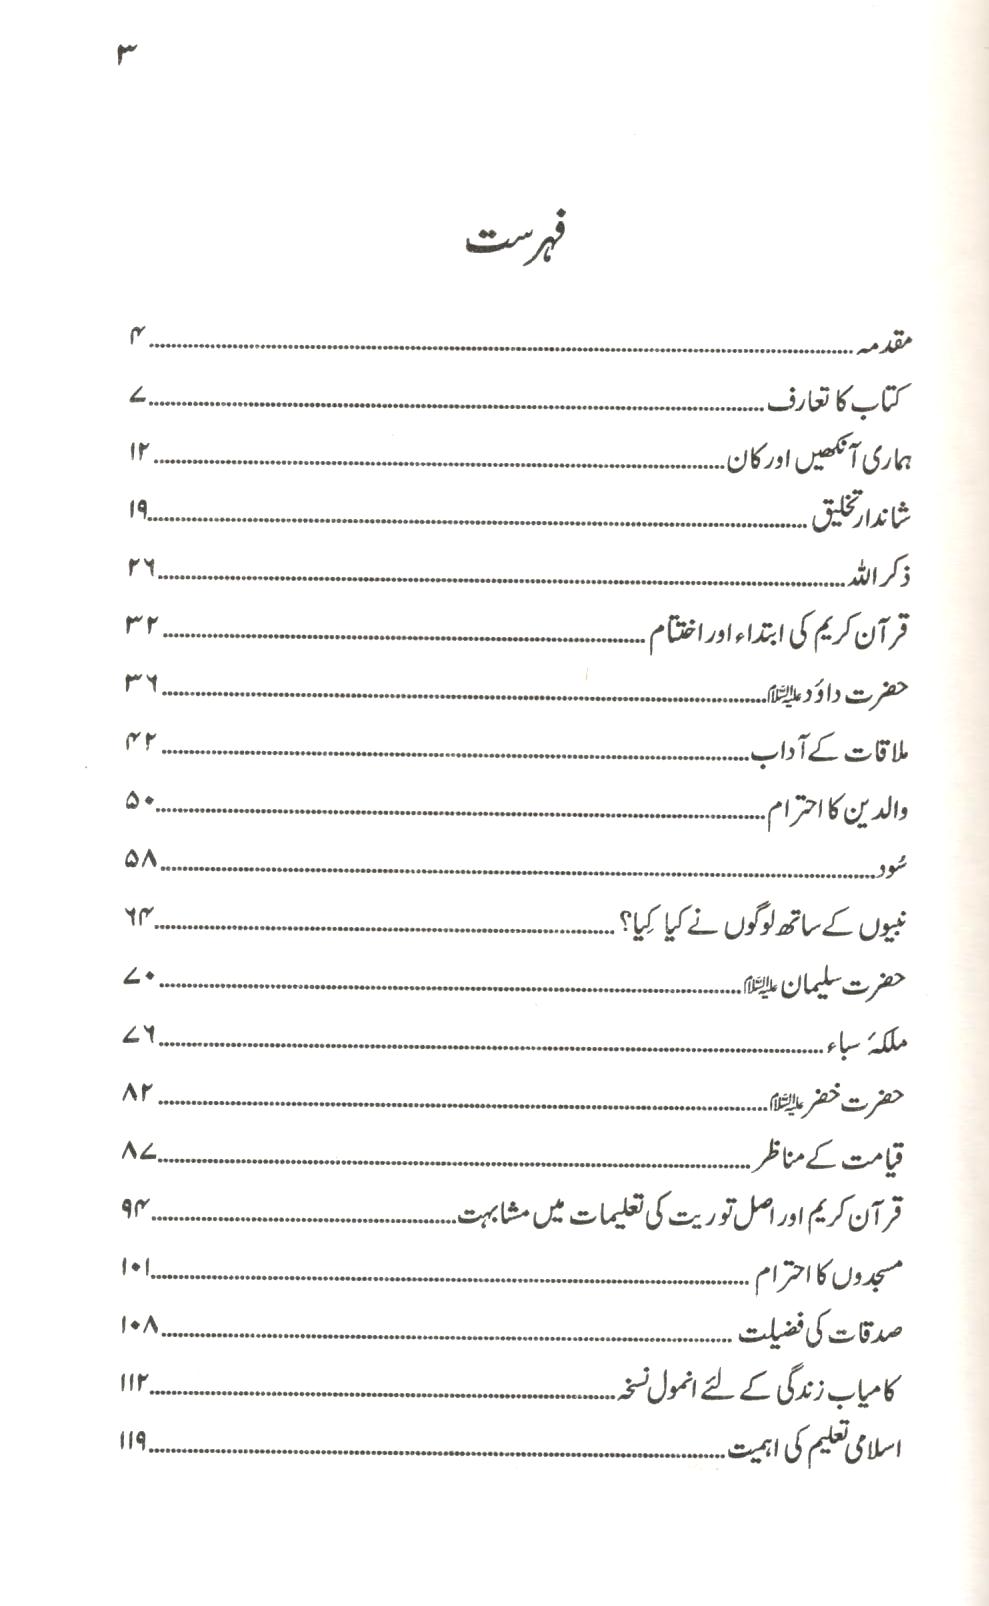 ۳
فہرست
مقدمہ ۴
کتاب کا تعارف ۷
ہماری آنکھیں اور کان ۱۲
شاندار تخلیق ۱۹
ذکر اللہ ۲۶
قرآن کریم کی ابتداء اور اختتام ۳۲
حضرت داؤد علیہ السلام ۳۶
ملاقات کے آداب ۴۲
والدین کا احترام ۵۰
سُود ۵۸
نبیوں کے ساتھ لوگوں نے کیا کِیا؟ ۶۴
حضرت سلیمان علیہ السلام ۷۰
ملکۂ سباء ۷۶
حضرت خضر علیہ السلام ۸۲
قیامت کے مناظر ۸۷
قرآن کریم اور اصل توریت کی تعلیمات میں مشابہت ۹۴
مسجدوں کا احترام ۱۰۱
صدقات کی فضیلت ۱۰۸
کامیاب زندگی کے لئے انمول نسخہ ۱۱۲
اسلامی تعلیم کی اہمیت ۱۱۹